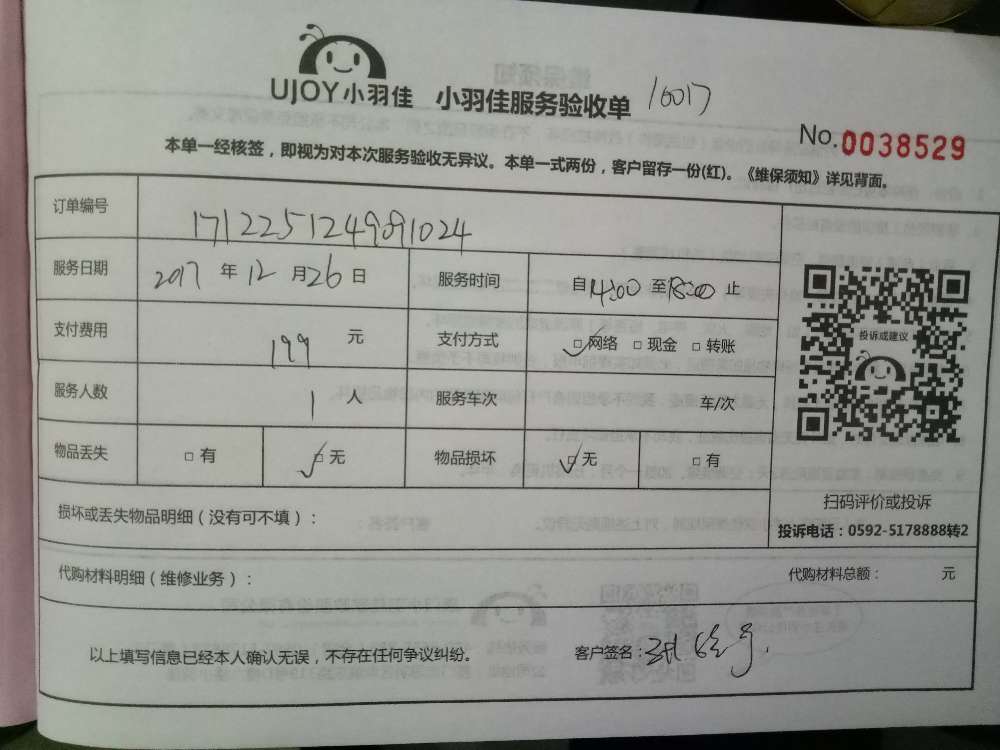 UJOY小羽佳 小羽佳服务验收单 16017
No.0038529
本单一经核签，即视为对本次服务验收无异议。本单一式两份，客户留存一份(红)。《维保须知》详见背面。
订单编号 1712251249091024
服务日期 2017 年 12 月 26 日 服务时间 自 14:00 至 18:00 止
支付费用 199 元 支付方式 □ 网络 □ 现金 □ 转账
服务人数 1 人 服务车次 车/次
物品丢失 □ 有 □ 无 物品损坏 □ 无 □ 有
投诉或建议
扫码评价或投诉
投诉电话：0592-5178888转2
损坏或丢失物品明细（没有可不填）：
代购材料明细（维修业务）： 代购材料总额： 元
以上填写信息已经本人确认无误，不存在任何争议纠纷。 客户签名：